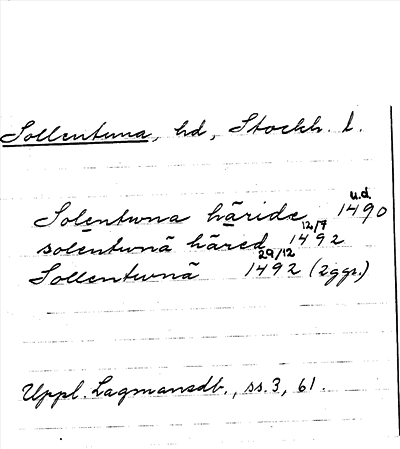 Sollentuna, hd, Stockh. l.
Solentwna häride u.d. 1490
solentwnā häred 12/7 1492
Sollentwnā 29/12 1492 (2ggr.)
Uppl. Lagmansdb., ss. 3, 61.